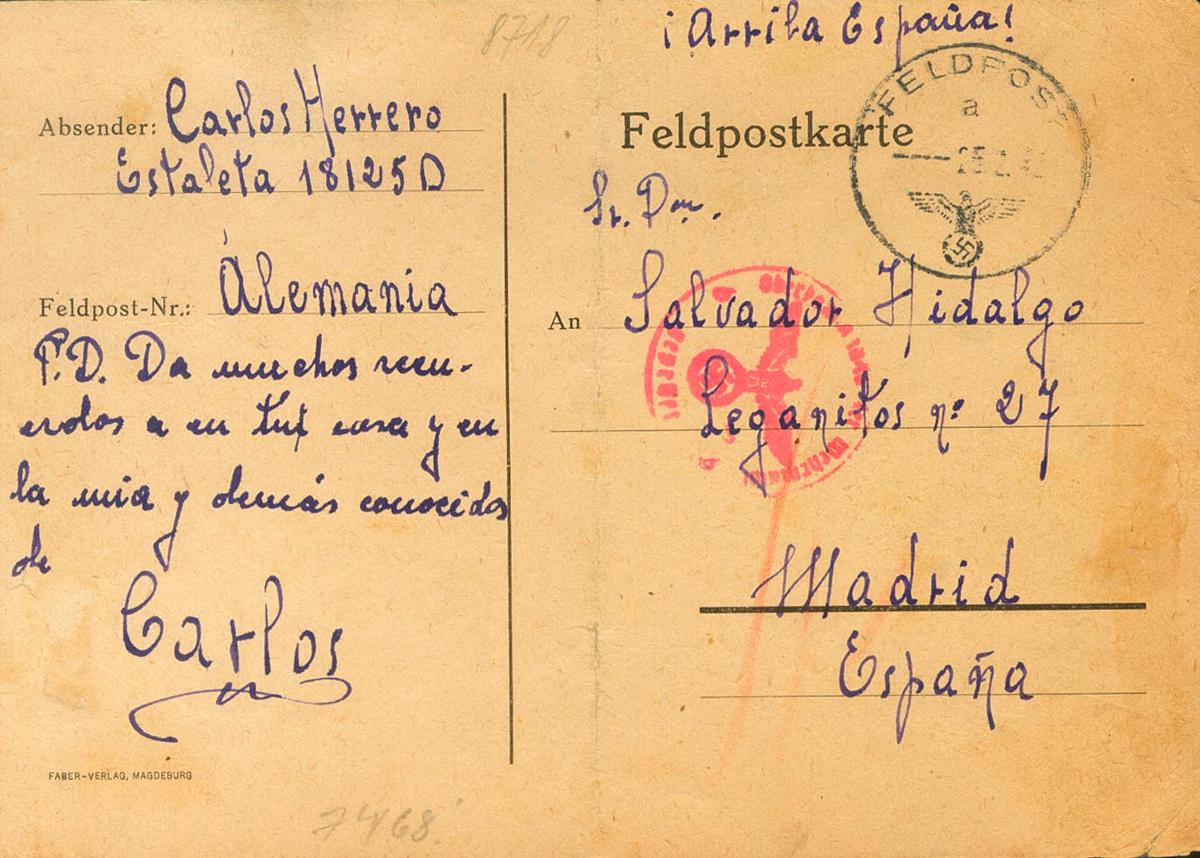 8718
¡Arriba España!
Absender: Carlos Herrero
Estafeta 18125 D
Feldpost-Nr.: Alemania
P.D. Da muchos recu-
erdos a en tu casa y en
la mia y demás conocidos
de
Carlos
FABER-VERLAG, MAGDEBURG
7468
FELDPOST
a
Feldpostkarte
Sr. Don.
An Salvador Hidalgo
Leganitos nº 27
Madrid
España
Geprüft